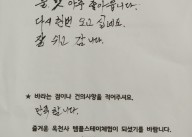 아주 좋아습니다.
다시 한번 오고 싶네요.
잘 쉬고 갑니다.
★ 바라는 점이나 건의사항을 적어주세요.
만족합니다.
즐거운 옥천사 템플스테이체험이 되셨기를 바랍니다.